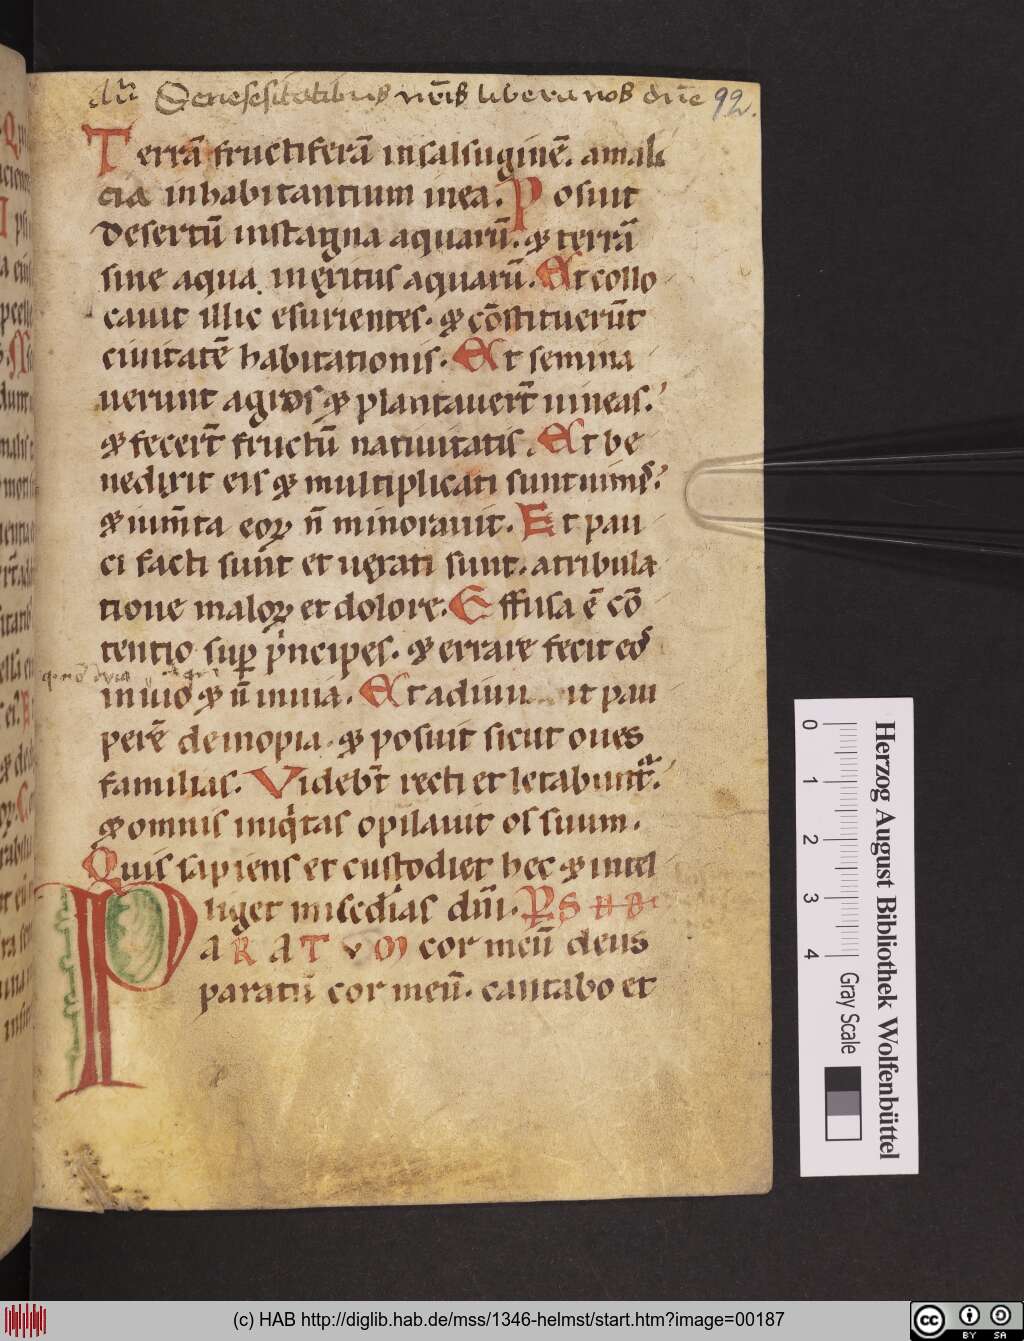 De nesesitatibus nr̄is libera nos dn̄e 92.
Terrā fructiferā insalsuginē. amali
cia inhabitantium inea. Posuit
desertū instagna aquarū. & terrā
sine aqua inexitus aquarū. Et collo
cauit illic esurientes. & cōstituerūt
ciuitatē habitationis. Et semina
uerunt agros & plantauer̄t uineas.
& fecer̄t fructū natiuitatis. Et be
nedixit eis & multiplicati sunt nimis.
& ium̄ta eoꝝ n̄ minorauit. Et pau
ci facti sunt et uexati sunt. atribula
tione maloꝝ et dolore. Effusa ē cō
tentio sup principes. & errare fecit eos
in inuio & n̄ inuia. Et adiuuit pau
perē deinopia. & posuit sicut oues
familias. Videbt̄ recti et letabuntᷣ.
& omnis iniqitas opilauit os suum.
Quis sapiens et custodiet hec & intel
liget misc̄dias dn̄i. PS
PARATVM cor meū deus
paratū cor meū. cantabo et
0 1 2 3 4
Gray Scale
Herzog August Bibliothek Wolfenbüttel
(c) HAB http://diglib.hab.de/mss/1346-helmst/start.htm?image=00187
cc BY SA